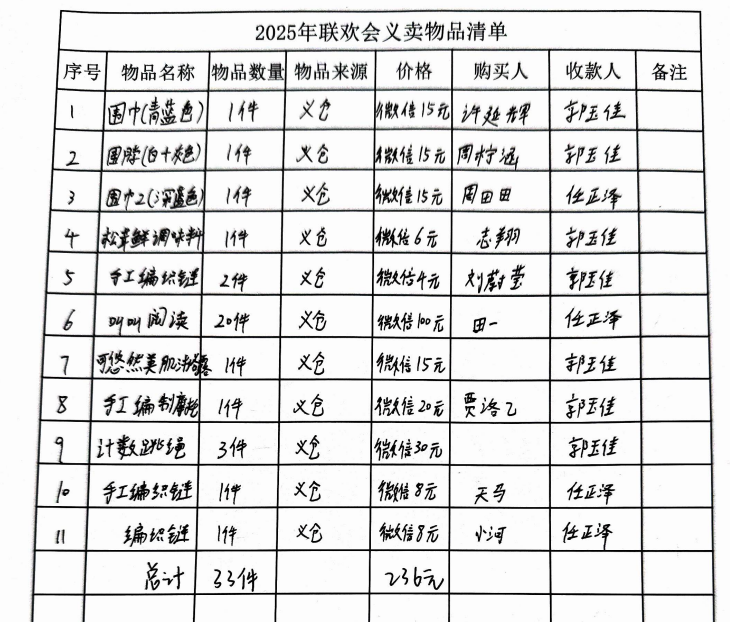 2025年联欢会义卖物品清单
序号 物品名称 物品数量 物品来源 价格 购买人 收款人 备注
1 围巾(青蓝色) 1件 义仓 微信15元 许延辉 郭玉佳
2 围脖(白+灰色) 1件 义仓 微信15元 周柠涵 郭玉佳
3 围巾2(深蓝色) 1件 义仓 微信15元 周田田 任正泽
4 松茸鲜调味料 1件 义仓 微信6元 志翔 郭玉佳
5 手工编织链 2件 义仓 微信4元 刘蔚莹 郭玉佳
6 叫叫阅读 20件 义仓 微信100元 田一 任正泽
7 可悠然美肌沐浴露 1件 义仓 微信15元 郭玉佳
8 手工编制 1件 义仓 微信20元 贾洛乙 郭玉佳
9 计数跳绳 3件 义仓 微信30元 郭玉佳
10 手工编织链 1件 义仓 微信8元 天马 任正泽
11 编织链 1件 义仓 微信8元 小河 任正泽
总计 33件 236元